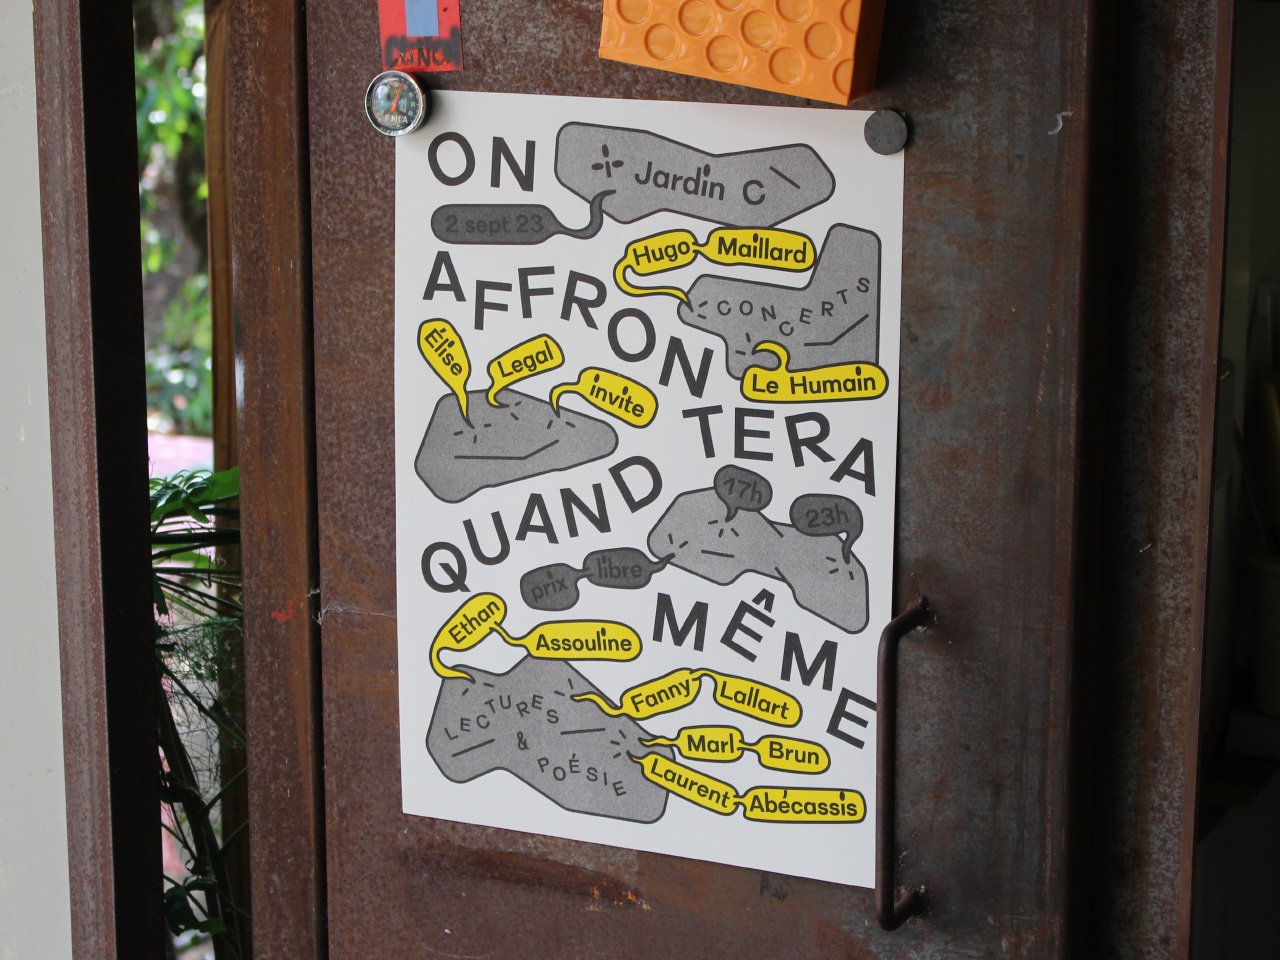 ON
Jardin C
2 sept 23
Hugo Maillard
AFFRONTERA
CONCERTS
Le Humain
Élise Legal invite
QUAND
17h
23h
prix libre
MÊME
Ethan Assouline
LECTURES
&
POÉSIE
Fanny Lallart
Marl Brun
Laurent Abécassis